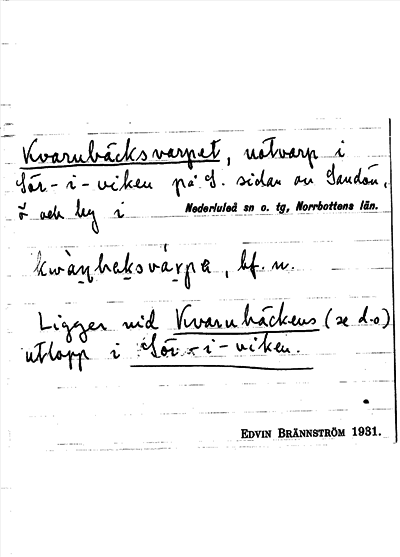 Kvarnbäcksvarpet, notvarp i
Sör-i-viken på S. sidan av Sandön,
ö och by i Nederluleå sn o. tg, Norrbottens län.
bf. n.
Ligger vid Kvarnbäckens (se d.o)
utlopp i Sör-i-viken.
EDVIN BRÄNNSTRÖM 1931.